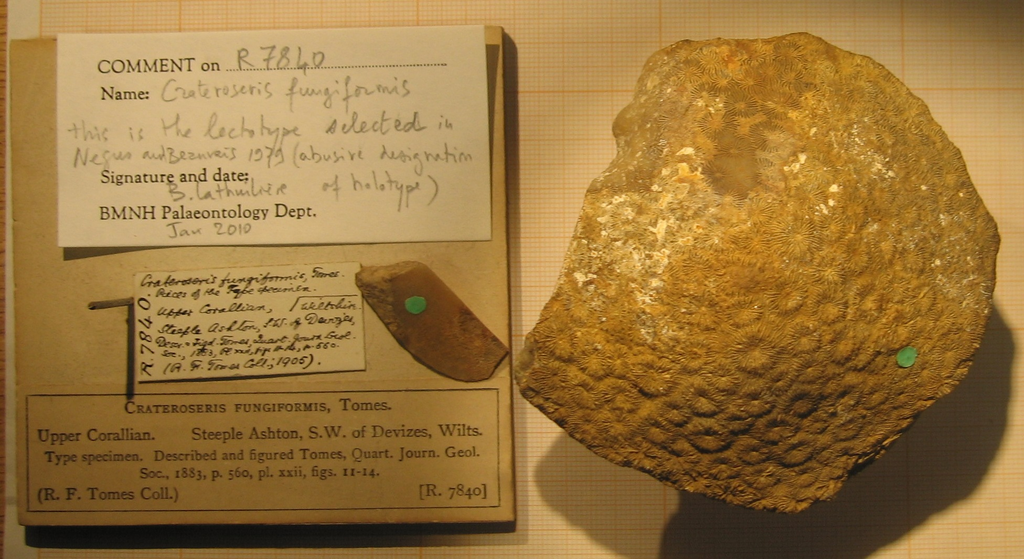 COMMENT on R 7840
Name: Crateroseris fungiformis
this is the lectotype selected in
Negus and Beauvais 1979 (abusive designation
of holotype)
Signature and date:
B. Lathuilière
BMNH Palaeontology Dept.
Jan 2010
R 7840.
Crateroseris fungiformis, Tomes.
Pieces of the Type specimen.
Upper Corallian, Wiltshire.
Steeple Ashton, S.W. of Devizes,
Descr. & figd. Tomes, Quart. Journ. Geol.
Soc., 1883, p. 560.
(R. F. Tomes Coll.; 1905).
CRATEROSERIS FUNGIFORMIS, Tomes.
Upper Corallian. Steeple Ashton, S.W. of Devizes, Wilts.
Type specimen. Described and figured Tomes, Quart. Journ. Geol.
Soc., 1883, p. 560, pl. xxii, figs. 11-14.
(R. F. Tomes Coll.) [R. 7840]